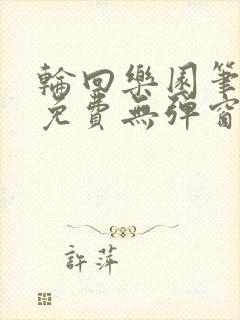 輪回樂園筆
免費無彈窗
許萍